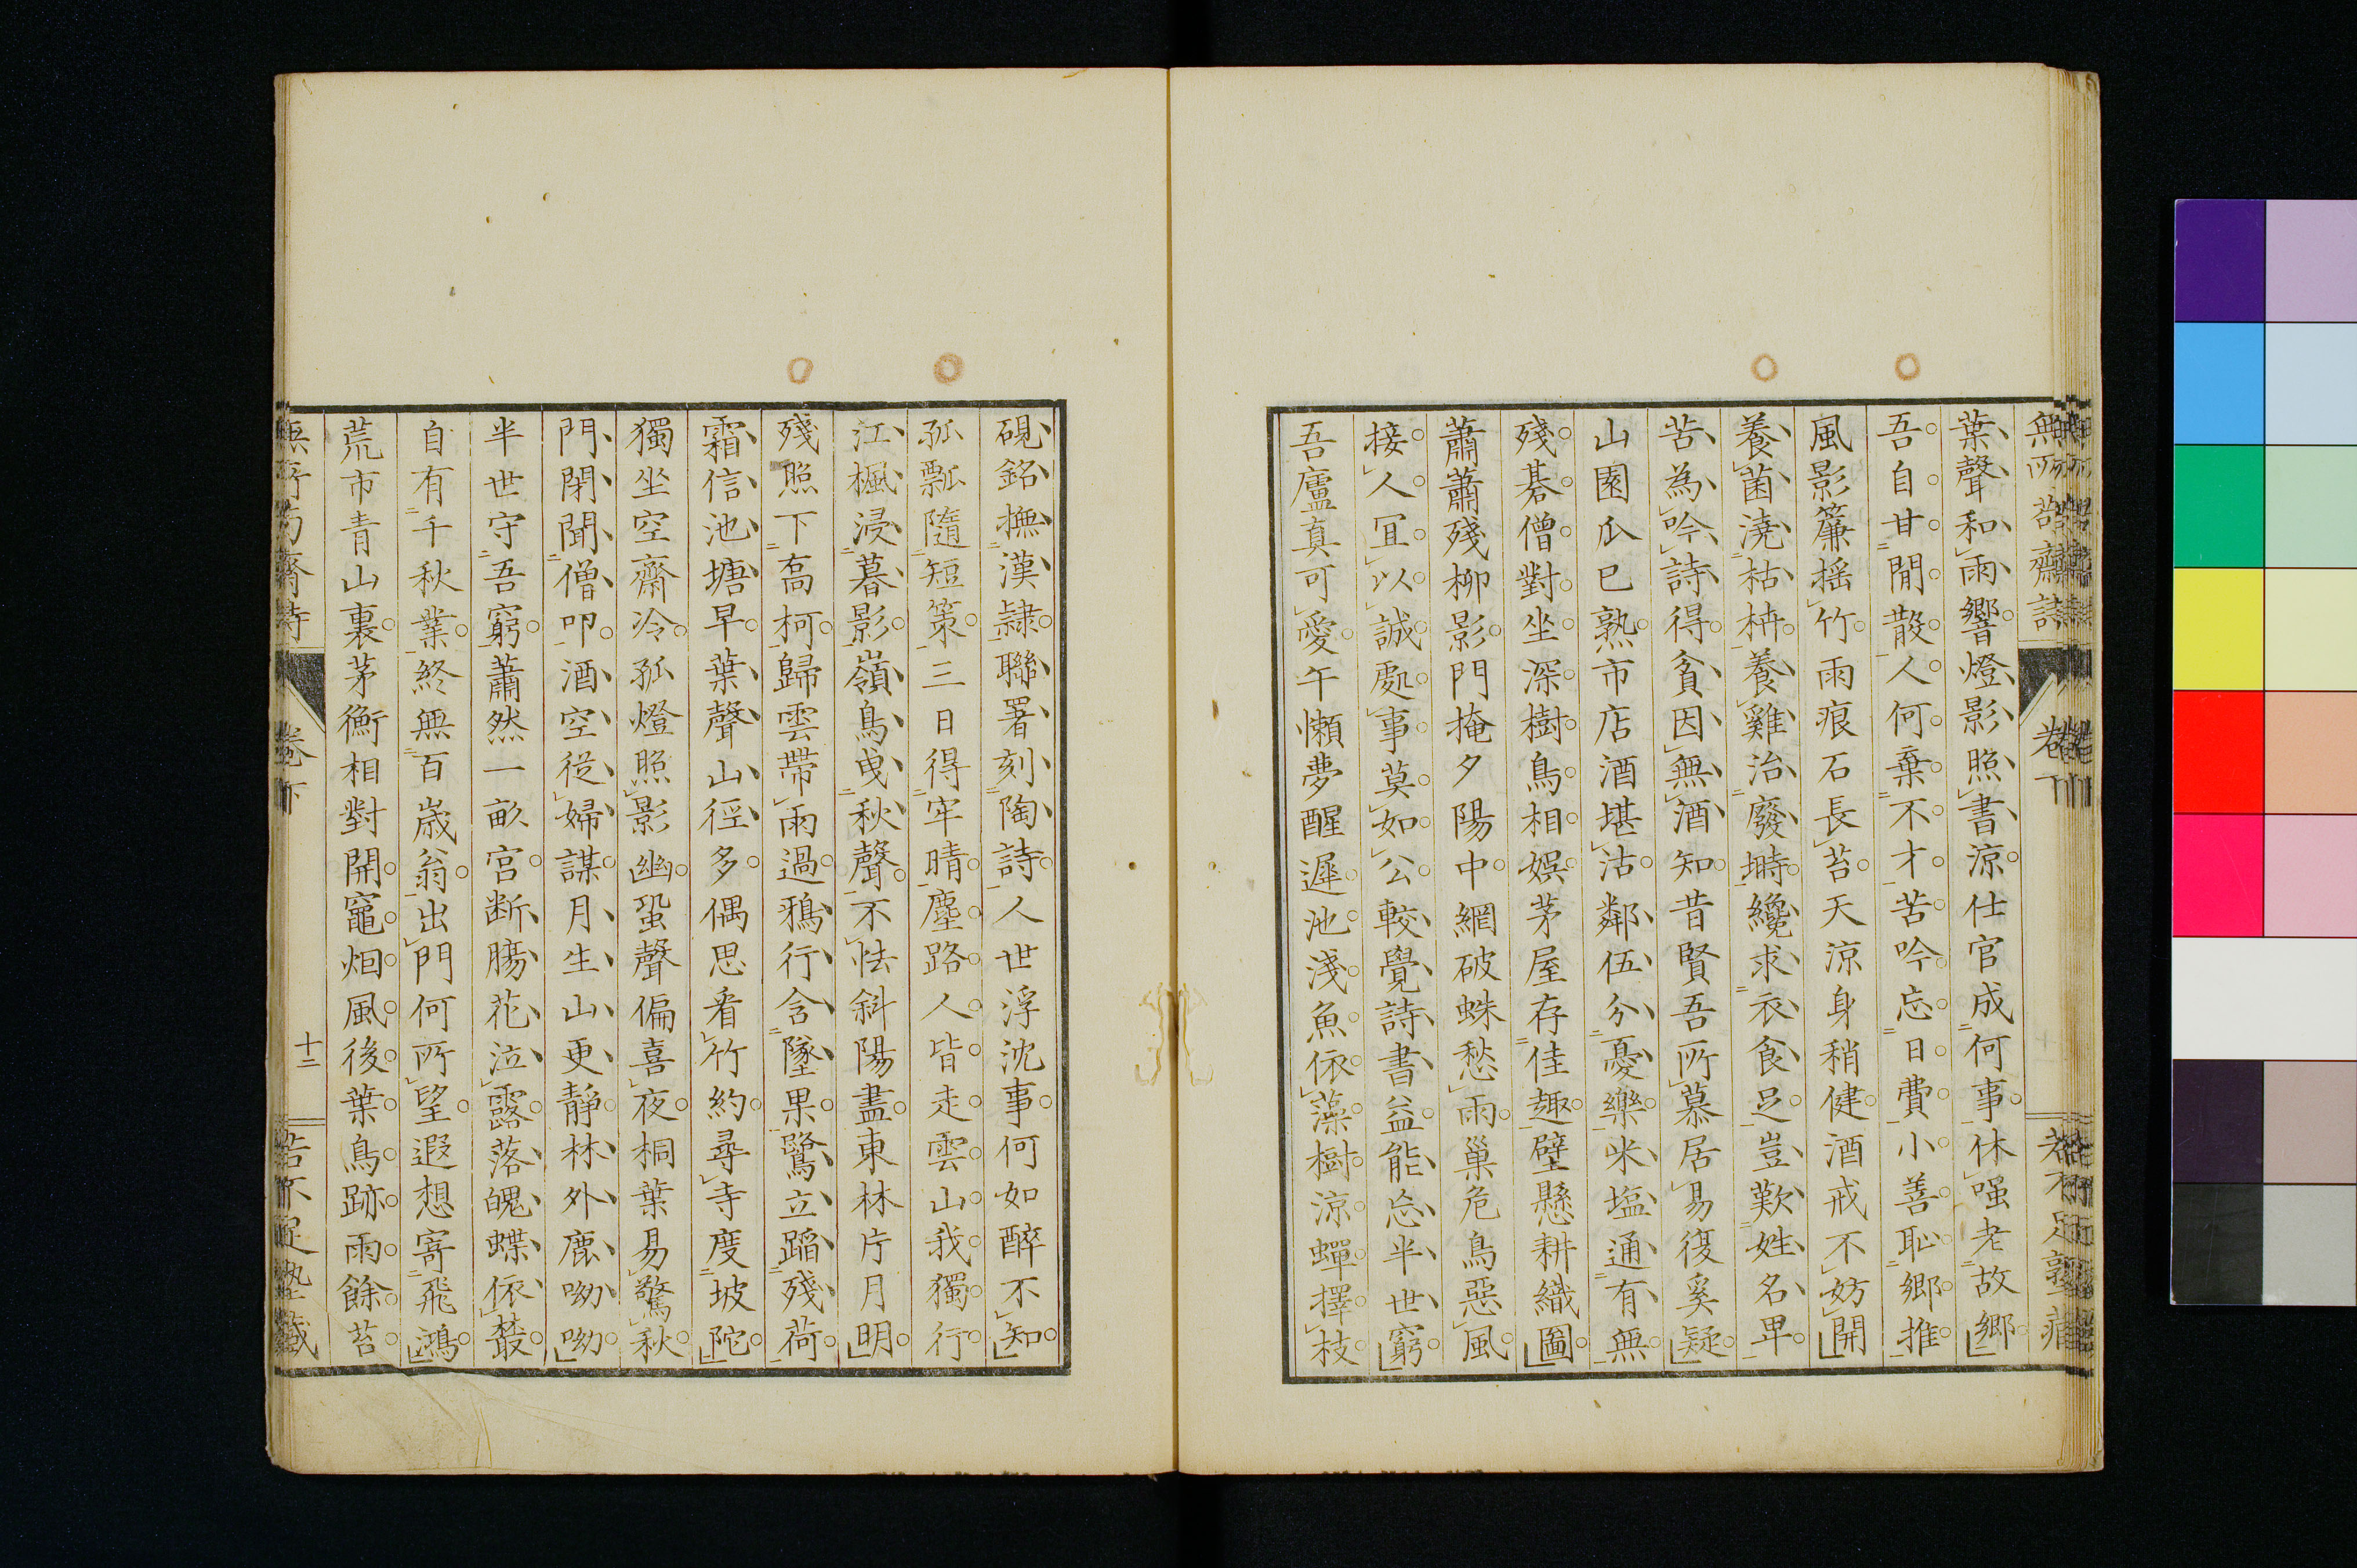 無所苟齋詩 卷下
葉聲和雨響燈影照書涼仕官成何事休嗤老故鄉
吾自甘閒散人何棄不才苦吟忘日費小善恥鄉推
風影簾揺竹雨痕石長苔天涼身稍健酒戒不妨開
養菌澆枯枿養雞治廢塒纔求衣食足豈歎姓名卑
苦為吟詩得貧因無酒知昔賢吾所慕居易復奚疑
山園瓜已熟市店酒堪沽鄰伍分憂樂米塩通有無
殘碁僧對坐深樹鳥相娯茅屋存佳趣壁懸耕織圖
蕭蕭殘柳影門掩夕陽中網破蛛愁雨巢危鳥惡風
接人宜以誠處事莫如公較覺詩書益能忘半世窮
吾廬真可愛午懶夢醒遲池淺魚依藻樹涼蟬擇枝
硯銘撫漢隷聯署刻陶詩人世浮沈事何如醉不知
孤瓢隨短策三日得牢晴塵路人皆走雲山我獨行
江楓浸暮影嶺鳥曵秋聲不怯斜陽盡東林片月明
殘照下高柯歸雲帶雨過鴉行含墜果鷺立蹈殘荷
霜信池塘早葉聲山徑多偶思看竹約尋寺度坡陀
獨坐空齋冷孤燈照影幽蛩聲偏喜夜桐葉易驚秋
門閉聞僧叩酒空從婦謀月生山更靜林外鹿呦呦
半世守吾窮蕭然一畝宮断腸花泣露落魄蝶依叢
自有千秋業終無百歳翁出門何所望遐想寄飛鴻
荒市青山裏茅衡相對開竈烟風後葉鳥跡雨餘苔
無所苟齋詩 卷下 十二 苦不足塾藏